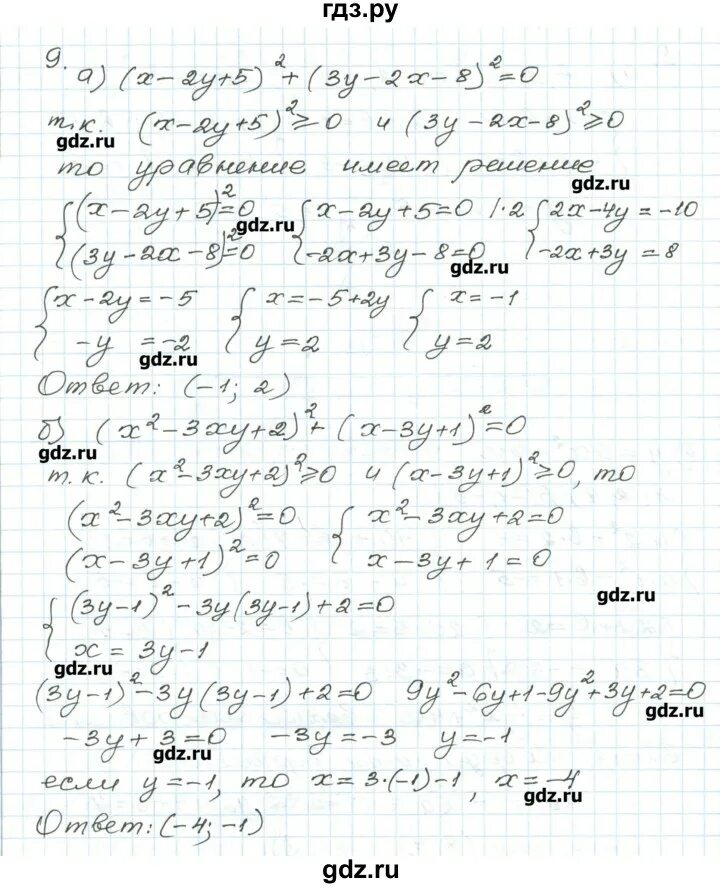 гдз.ру
9.
а) (x-2y+5)² + (3y-2x-8)² = 0
т.к. (x-2y+5)² ≥ 0 и (3y-2x-8)² ≥ 0
gdz.ru
то уравнение имеет решение
gdz.ru
{(x-2y+5)²=0 {x-2y+5=0 |·2 {2x-4y=-10
gdz.ru
(3y-2x-8)²=0 -2x+3y-8=0 -2x+3y=8
gdz.ru
{x-2y=-5 {x=-5+2y {x=-1
-y =-2 y=2 y=2
gdz.ru
Ответ: (-1; 2)
б) (x²-3xy+2)² + (x-3y+1)² = 0
gdz.ru
т.к. (x²-3xy+2)² ≥ 0 и (x-3y+1)² ≥ 0, то
(x²-3xy+2)²=0 {x²-3xy+2=0
gdz.ru
(x-3y+1)²=0 x-3y+1=0
gdz.ru
{(3y-1)²-3y(3y-1)+2=0
x=3y-1
gdz.ru
(3y-1)²-3y(3y-1)+2=0 9y²-6y+1-9y²+3y+2=0
gdz.ru
-3y+3=0 -3y=-3 y=-1
gdz.ru
если y=-1, то x=3·(-1)-1, x=-4
gdz.ru
Ответ: (-4; -1)
gdz.ru